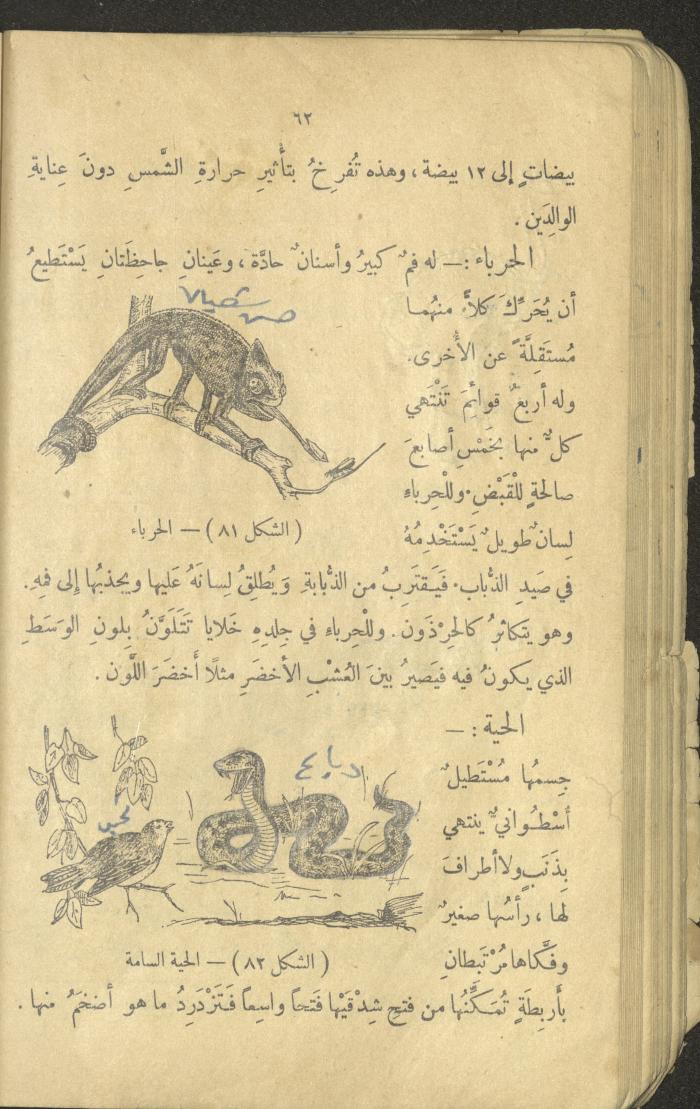 ٦٢
بيضاتٍ إلى ١٢ بيضة ، وهذه تُفرِخُ بتأْثيرِ حرارةِ الشَّمسِ دونَ عِنايةِ
الوالدَين .
الحرباء : — له فمٌ كبيرُ وأسنانٌ حادَّة ، وعَينانِ جاحِظَتانِ يَسْتَطيعُ
أن يُحَرِّكَ كلاًّ منهُما
مُستَقِلَّةً عن الأُخرى.
وله أربعُ قوائِمَ تَنْتَهي
كلٌّ منها بخَمْسِ أصابعَ
صالحةٍ للْقَبْضِ. وللْحِرباءِ
لِسانٌ طويلٌ يَسْتَخْدِمُهُ
(الشكل ٨١) — الحرباء
في صَيدِ الذُّباب. فَيَقتَرِبُ من الذُّبابةِ وَيُطلِقُ لِسانَهُ عَليها ويجذبُها إلى فمِهِ.
وهو يتكاثرُ كالحِرْذَون. وللْحِرباءِ في جِلدِهِ خَلايا تَتَلَوَّنُ بِلونِ الوَسَطِ
الذي يكونُ فيه فيَصيرُ بينَ العُشْبِ الأخضَرِ مثلًا أَخضَرَ اللَّون .
الحية : —
جِسمُها مُسْتَطيلٌ
أُسْطُوانيٌّ ينتهي
بِذَنَبٍ ولا أطرافَ
لها ، رأسُها صغيرٌ
وفَكَّاها مُرْتَبِطانِ
(الشكل ٨٢) — الحية السامة
بأَربِطَةٍ تُمَكِّنُها من فتحِ شِدْقَيْها فَتحاً واسِعاً فَتَزْدَرِدُ ما هو أضخَمُ منها .